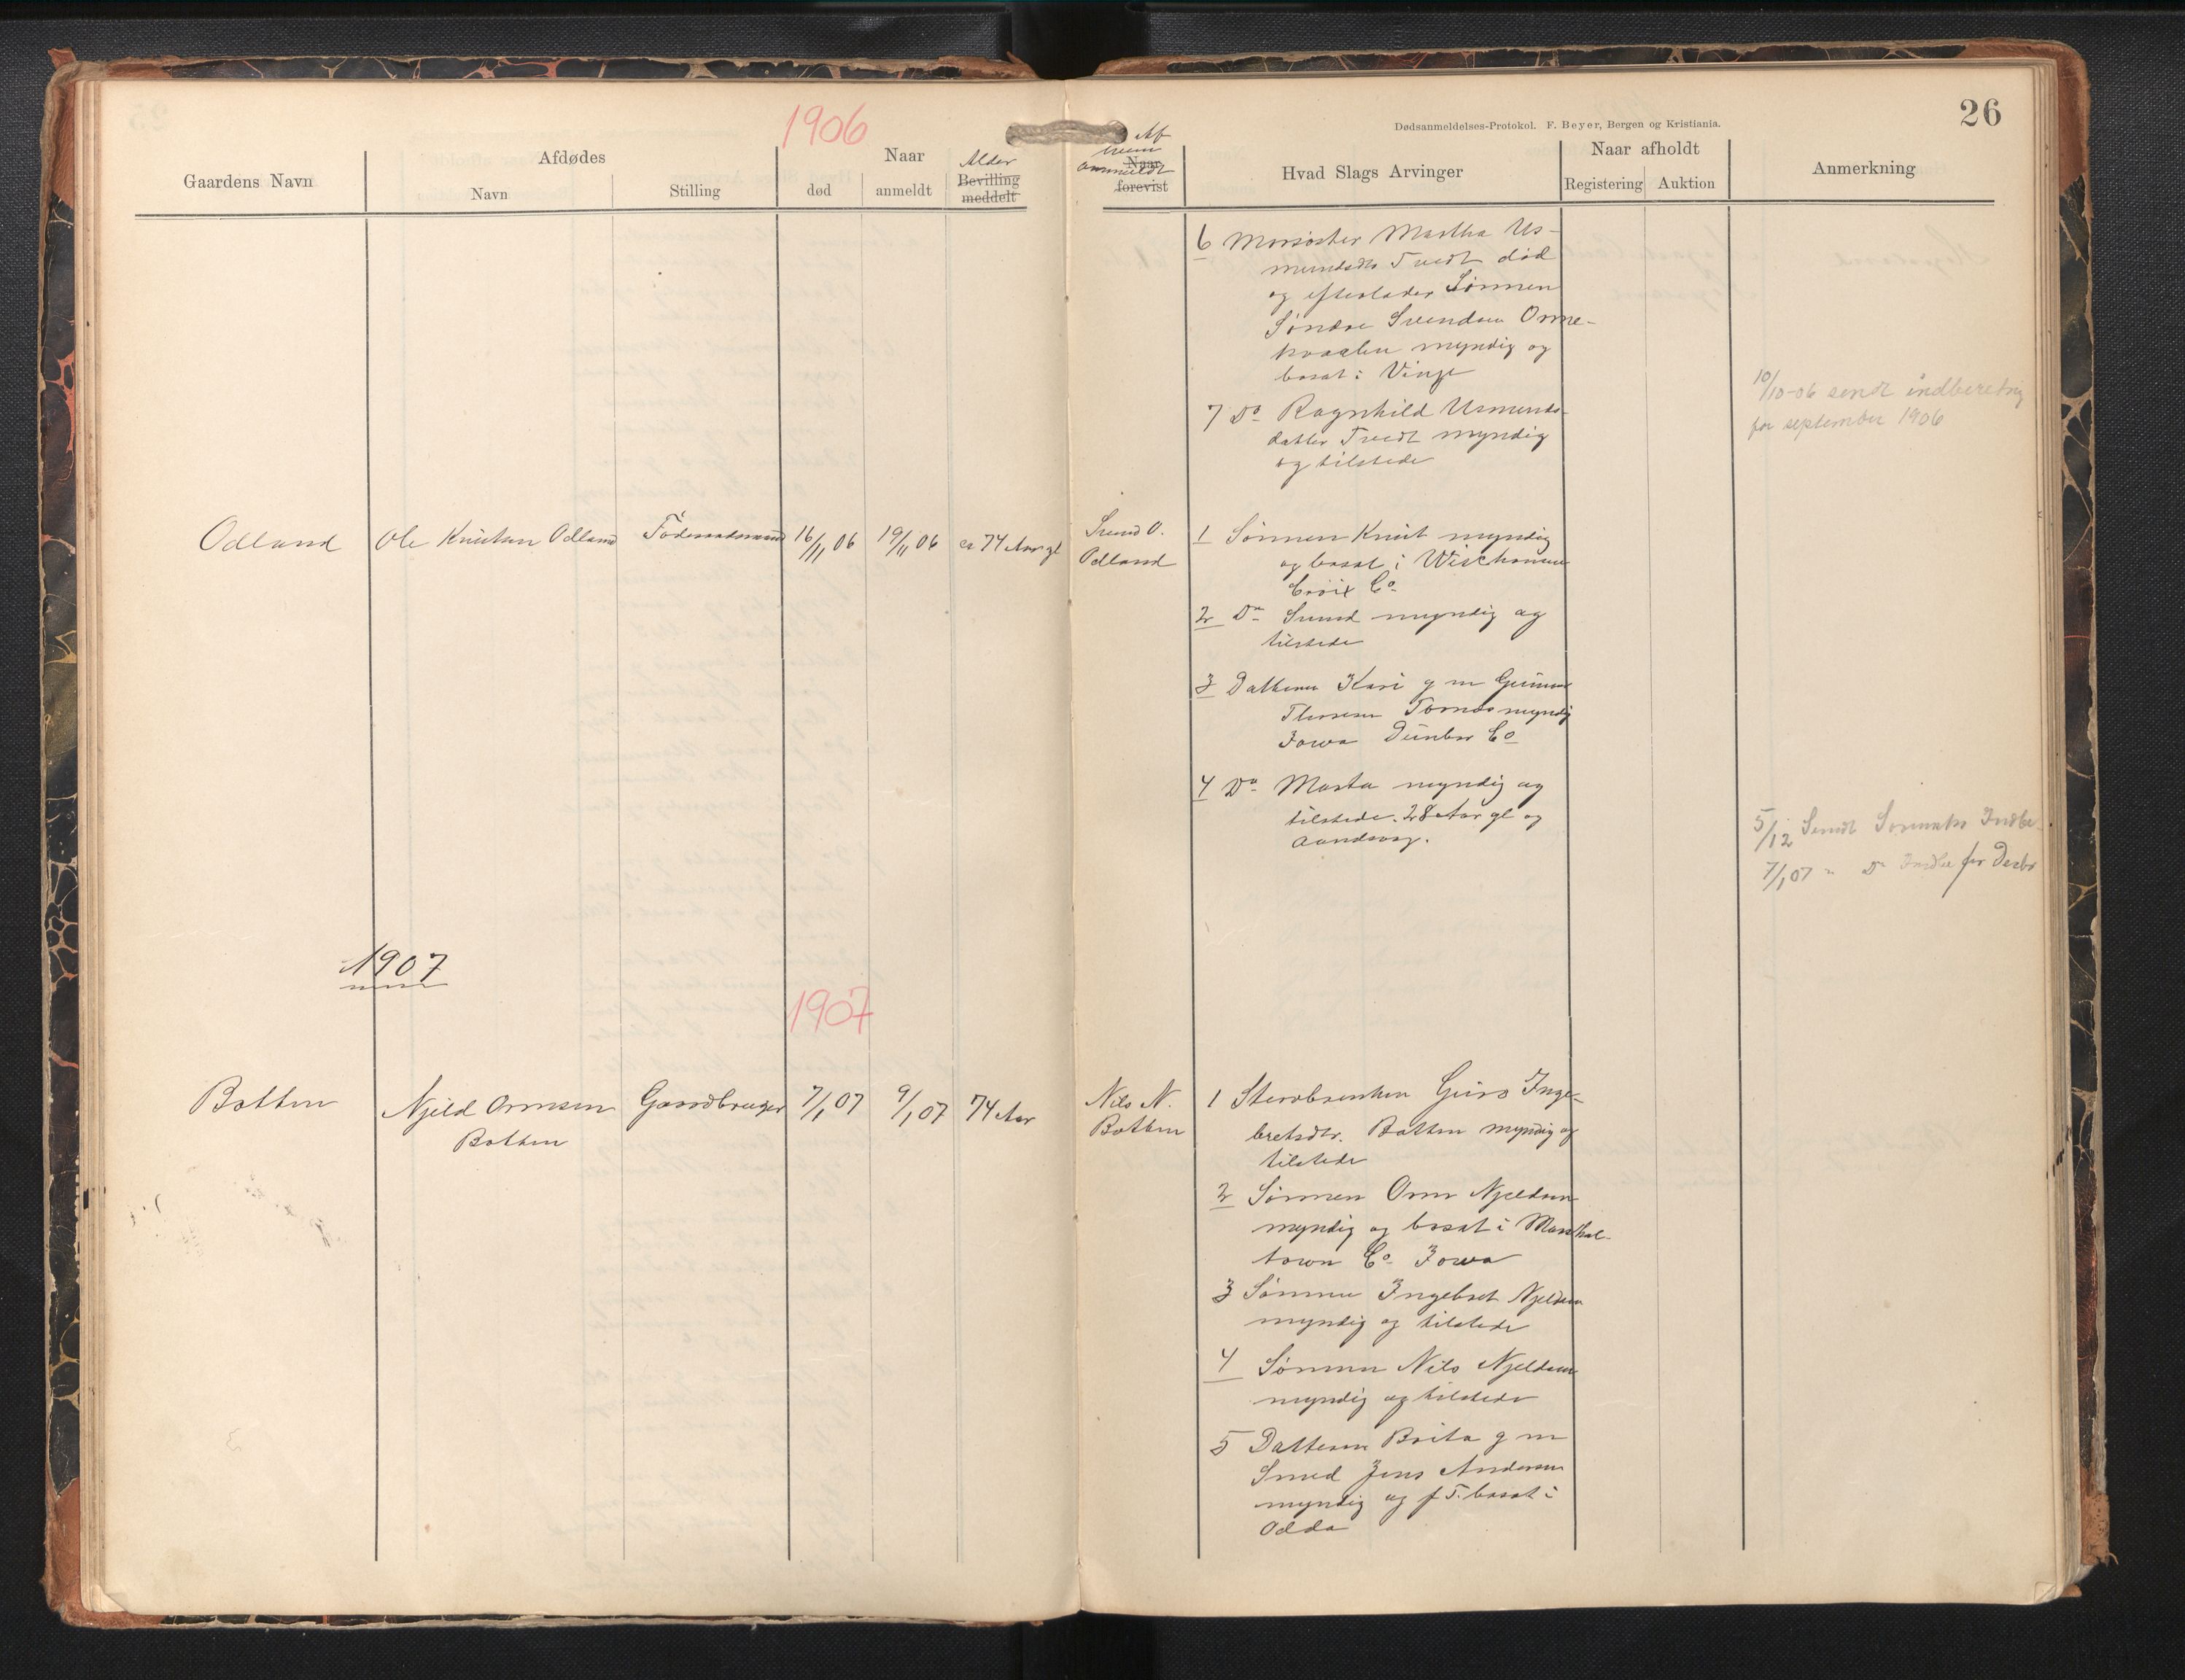 1906
26
Dødsanmeldelses-Protokol. F. Beyer, Bergen og Kristiania.
Gaardens Navn
Afdødes
Navn
Stilling
Naar
død
anmeldt
Alder
Bevilling
meddelt
Af
hvem
anmeldt
Naar
forevist
Hvad Slags Arvinger
Naar afholdt
Registering
Auktion
Anmerkning
6 Morsøster Martha As-
mundsdtr Tvedt død
og efterlader Sønnen
Søndre Svendsen Orme-
myndig og
bosat i Vinje
7 Do Ragnhild Asmunds-
datter Tvedt myndig
og tilstede
10/10-06 sendt indberetnig
for september 1906
Odland
Ole Knutsen Odland
Föderaadsmand
16/11 06
19/11 06
ca 74 Aar gl
Svend O.
Odland
1 Sønnen Knut myndig
og bosat i
Croix Co
2 Do Svend myndig og
tilstede
3 Datteren Kari g m Gunnar
Thorsen myndig
Iowa Co
4 Do Marta myndig og
tilstede. 28 Aar gl og
aandssvag.
5/12 Sendt Indbe-
7/1 07 " Do Indbe for Decbr
1907
1907
Botten
Njeld Ormsen
Botten
Gaardbruger
7/1 07
9/1 07
74 Aar
Nils N.
Botten
1 Stervboenken Guro Inge-
bretsdtr. Botten myndig og
tilstede
2 Sønnen Orm Njeldsen
myndig og bosat i Marshal-
town Co Iowa
3 Sønnen Ingebret Njeldsen
myndig og tilstede
4 Sønnen Nils Njeldsen
myndig og tilstede
5 Datteren Brita g m
Smed Jens Andersen
myndig og f T. bosat i
Odda